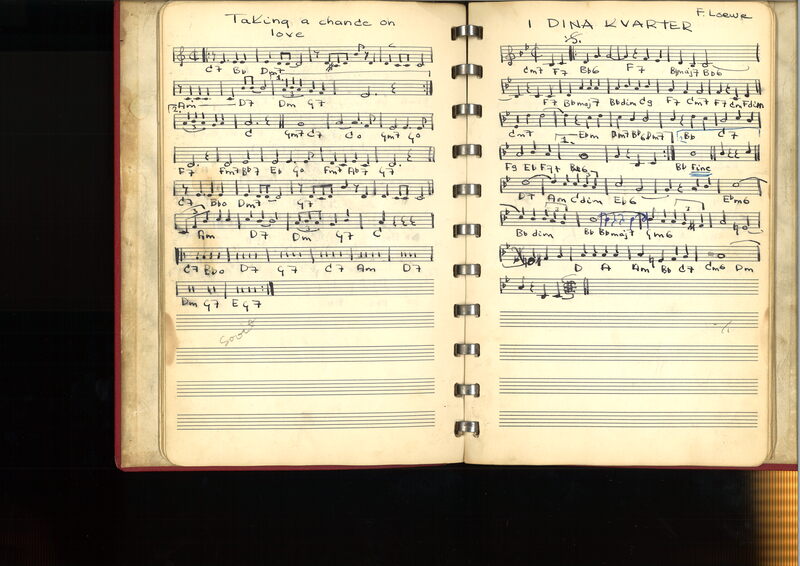 Taking a chance on
love
C7 Bb Dm7
Am D7 Dm G7
C Gm7 C7 C0 Gm7 G0
F7 Fm7 Bb7 Eb G0 Fm7 Ab7 G7
C7 Bb0 Dm7 G7
Am D7 Dm G7 C
C7 Bb0 D7 G7 C7 Am D7
Dm G7 E G7
I DINA KVARTER
F. Loewe
Cm7 F7 Bb6 F7 Bbmaj7 Bb6
F7 Bbmaj7 Bbdim C9 F7 Cm7 F7 Cm Fdim
Cm7 Ebm Dm7 Bb6 Dm7 Bb C7
1.
F9 Eb F7+ Bb6 Bb Fine
D7 Am Cdim Eb6 Ebm6
Bb dim Bb Bbmaj7 Gm6
D A Am Bb C7 Cm6 Dm